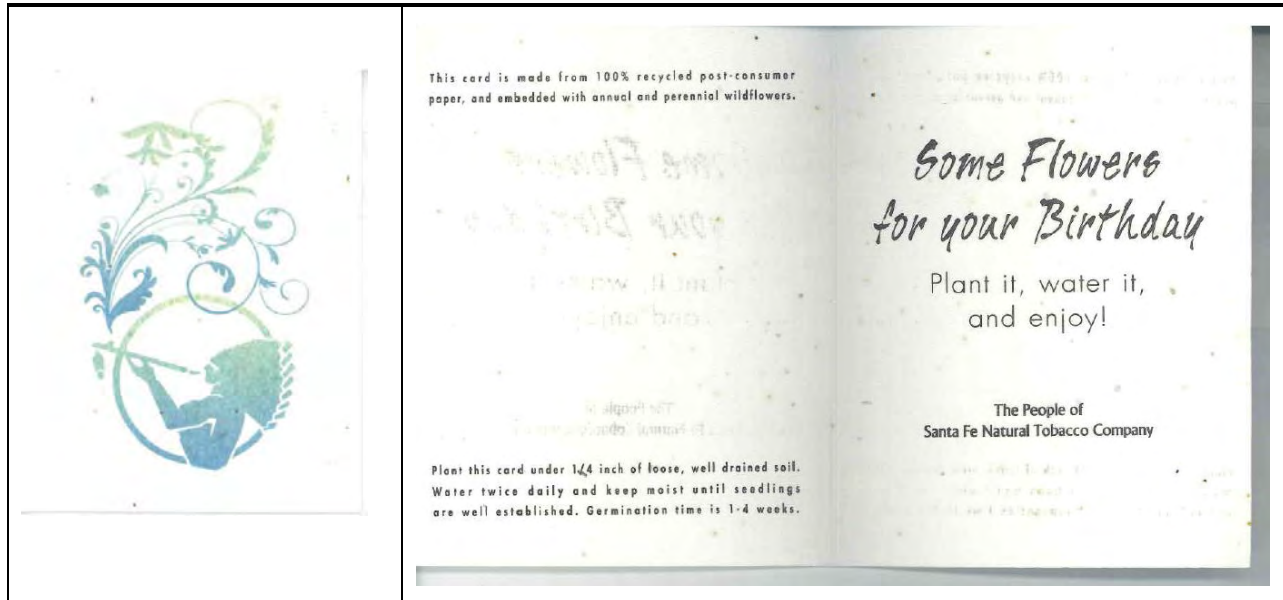 This card is made from 100% recycled post-consumer
paper, and embedded with annual and perennial wildflowers.
Plant this card under 1/4 inch of loose, well drained soil.
Water twice daily and keep moist until seedlings
are well established. Germination time is 1-4 weeks.
Some Flowers
for your Birthday
Plant it, water it,
and enjoy!
The People of
Santa Fe Natural Tobacco Company